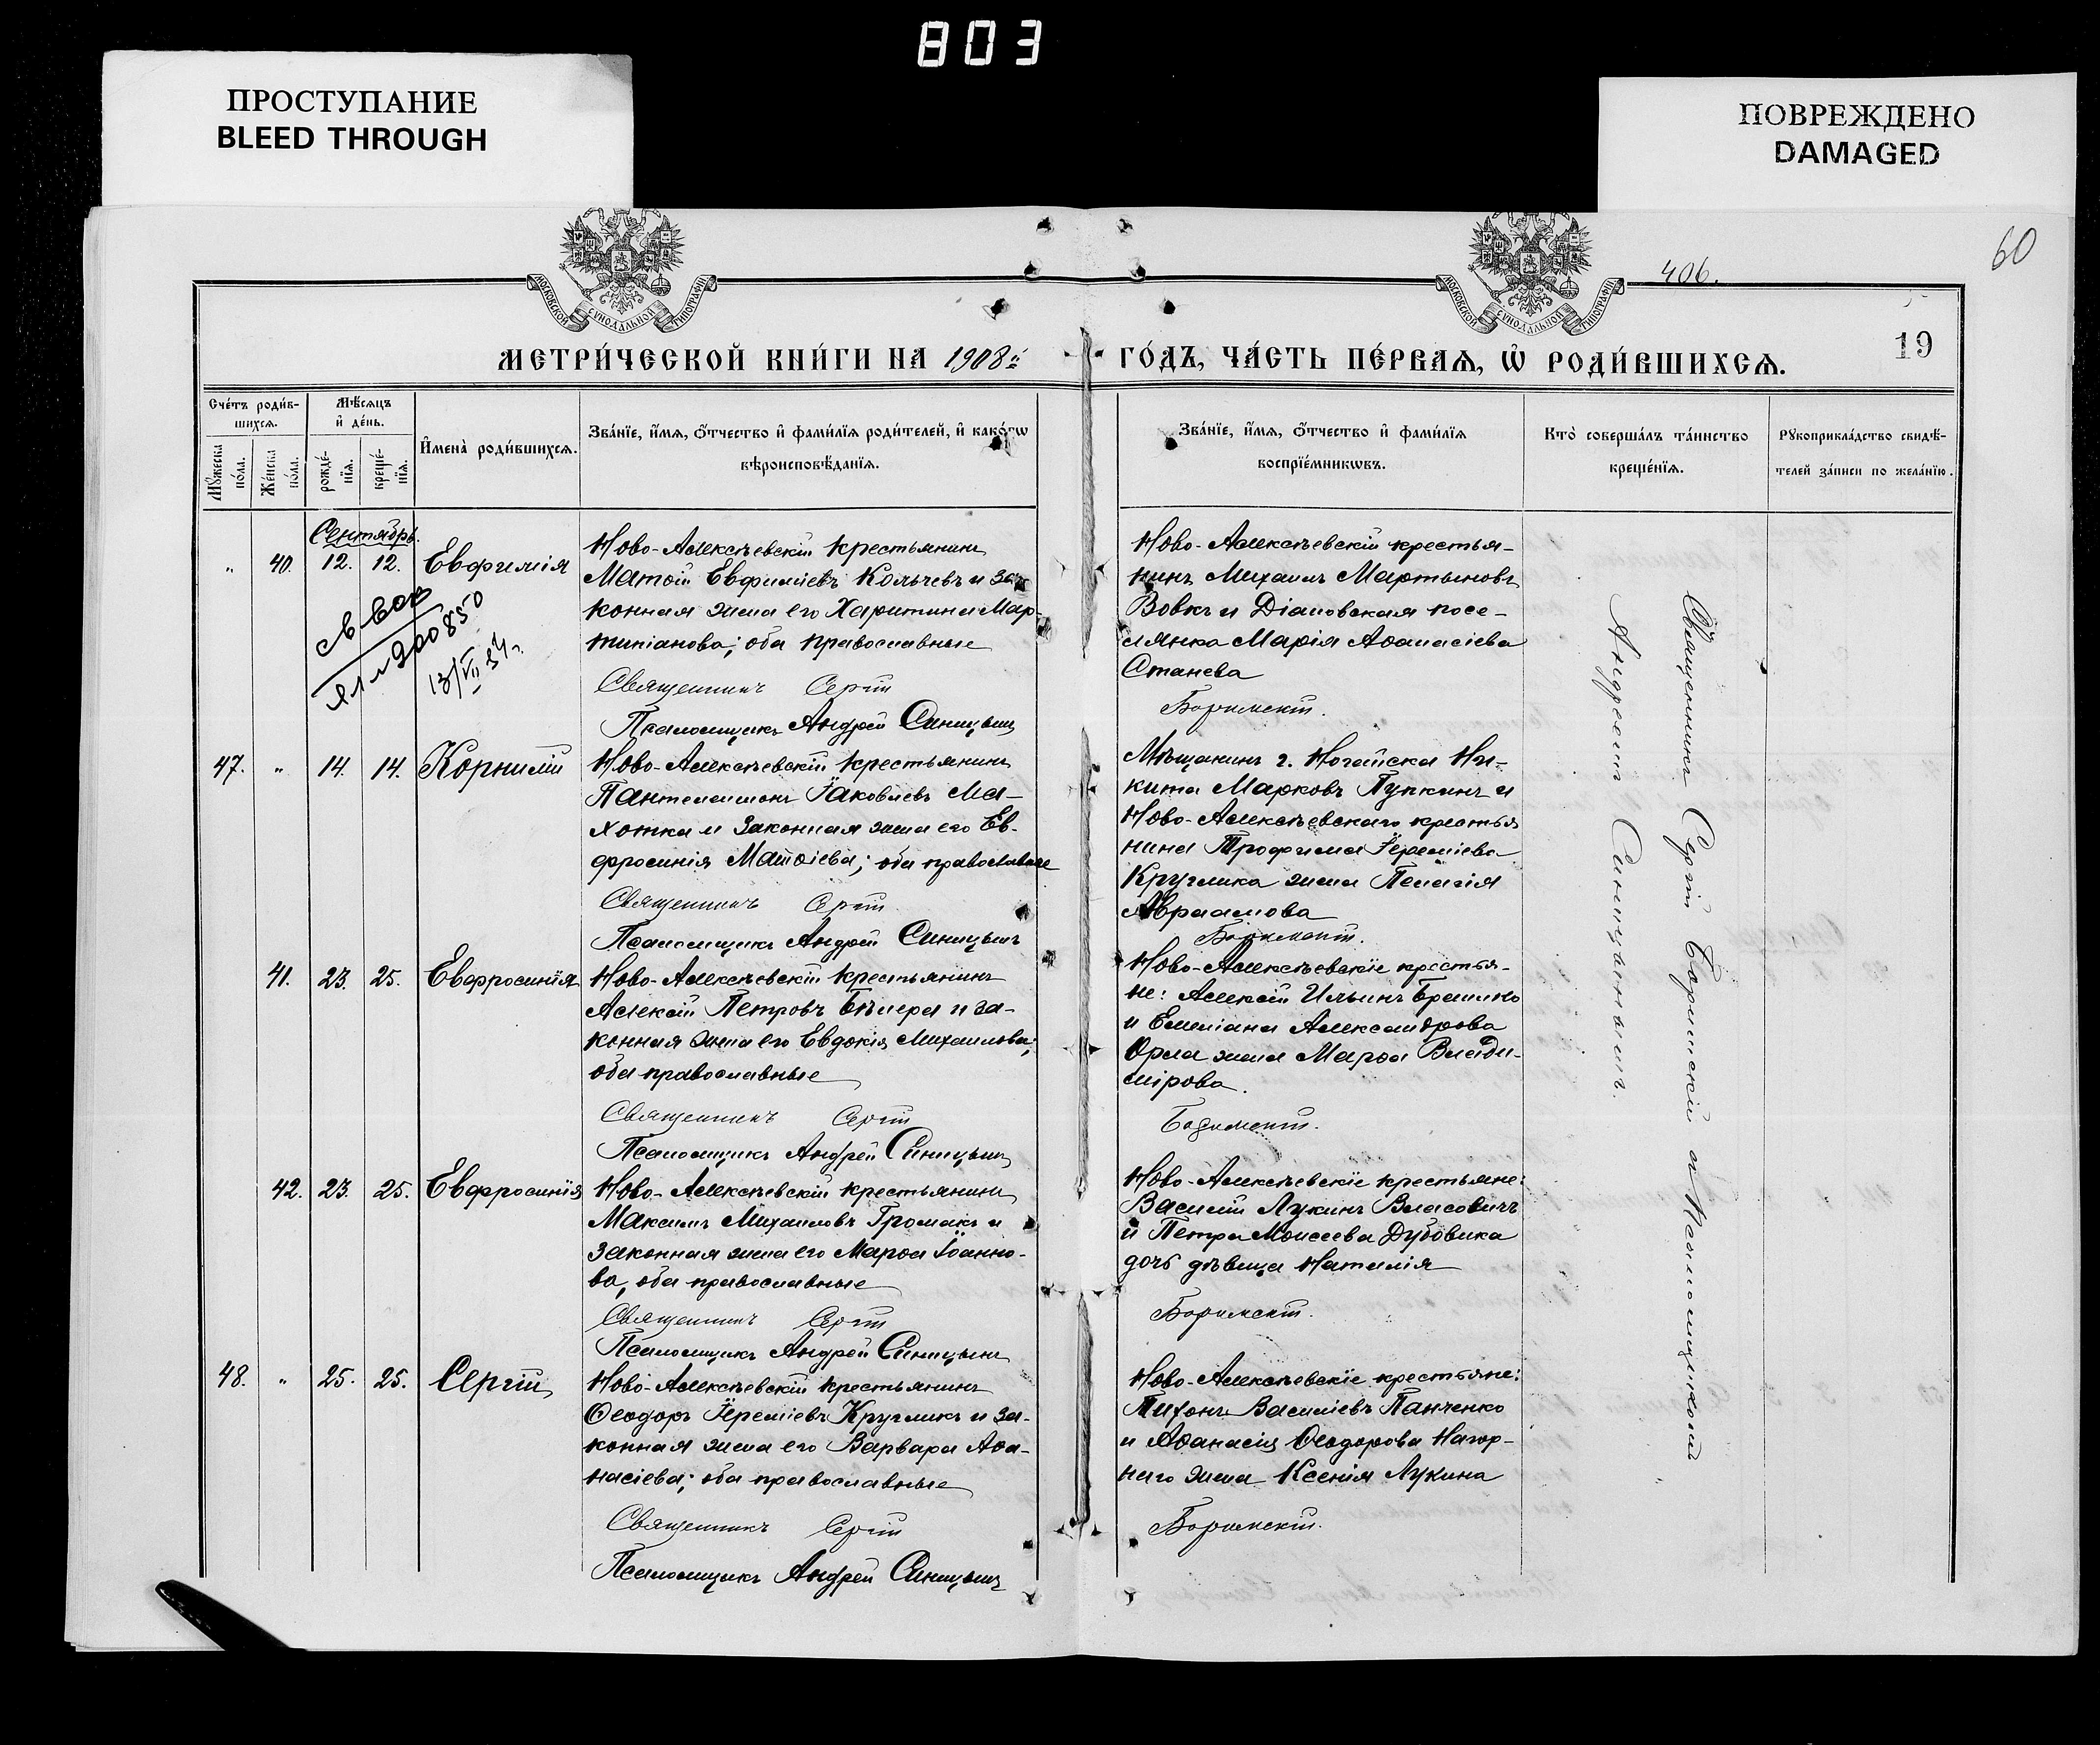 803
ПРОСТУПАНИЕ
BLEED THROUGH
ПОВРЕЖДЕНО
DAMAGED
МОСКОВСКОЙ СѴНОДАЛЬНОЙ ТИПОГРАФІИ
МОСКОВСКОЙ СѴНОДАЛЬНОЙ ТИПОГРАФІИ
406.
60
19
МЕТРИ́ЧЕСКОЙ КНИ́ГИ НА 1908й
ГО́ДЪ, ЧА́СТЬ ПЕ́РВАѦ, Ѡ҆ РОДИ́ВШИХСѦ.
Сче́тъ роди́в-
шихсѧ.
Мѣ́сѧцъ
и҆ де́нь.
Мꙋ́жеска по́ла.
Же́нска по́ла.
рожде́-
нїѧ.
креще́-
нїѧ.
И҆мена̀ роди́вшихсѧ.
Зва́нїе, и҆́мѧ, ѻ҆́тчество и҆ фами́лїѧ роди́телей, и҆ како́гѡ
вѣроисповѣ́данїѧ.
Зва́нїе, и҆́мѧ, ѻ҆́тчество и҆ фами́лїѧ
воспрїе́мникѡвъ.
Кто̀ соверша́лъ та́инство
креще́нїѧ.
Рꙋкоприкла́дство свидѣ́-
телей за́писи по жела́нїю.
Сентябрь.
" 40. 12. 12. Евфимія
13/VII 34г.
Ново-Алексѣевскій крестьянинъ
Матѳій Евфиміевъ Кольчевъ и за-
конная жена его Харитина Мар-
тиніанова; оба православные
Священникъ Сергій
Псаломщикъ Андрей Синицынъ
Ново-Алексѣевскій крестья-
нинъ Михаилъ Мартыновъ
Вовкъ и Діановская посе-
лянка Марія Аѳанасіева
Станева
Боримскій.
47. " 14. 14. Корнилій
Ново-Алексѣевскій крестьянинъ
Пантелеимонъ Іаковлевъ Ма-
хотка и законная жена его Ев-
фросинія Матѳіева; оба православные
Священникъ Сергій
Псаломщикъ Андрей Синицынъ
Мѣщанинъ г. Ногайска Ни-
кита Марковъ Пупкинъ и
Ново-Алексѣевскаго крестья
нина Трофима Іереміева
Круглика жена Пелагія
Авраамова
Боримскій.
41. 23. 25. Евфросинія
Ново-Алексѣевскій крестьянинъ
Алексій Петровъ Бѣлера и за-
конная жена его Евдокія Михаилова;
оба православные
Священникъ Сергій
Псаломщикъ Андрей Синицынъ
Ново-Алексѣевскіе крестья-
не: Алексій Ильинъ Брешко
и Емиліана Александрова
Орла жена Марѳа Влади-
мірова.
Боримскій.
42. 23. 25. Евфросинія
Ново-Алексѣевскій крестьянинъ
Максимъ Михаиловъ Громакъ и
законная жена его Марѳа Іоанно-
ва, оба православные
Священникъ Сергій
Псаломщикъ Андрей Синицынъ
Ново-Алексѣевскіе крестьяне:
Василій Лукинъ Власовичъ
и Петра Моисеева Дубовика
дочь дѣвица Наталія
Боримскій.
48. " 25. 25. Сергій
Ново-Алексѣевскій крестьянинъ
Ѳеодоръ Іереміевъ Кругликъ и за-
конная жена его Варвара Аѳа-
насіева; оба православные
Священникъ Сергій
Псаломщикъ Андрей Синицынъ
Ново-Алексѣевскіе крестьяне:
Тихонъ Василіевъ Панченко
и Аѳанасія Ѳеодорова Нагор-
наго жена Ксенія Лукина
Боримскій.
Священникъ Сергій Боримскій и Псаломщикомъ
Андреемъ Синицынымъ.